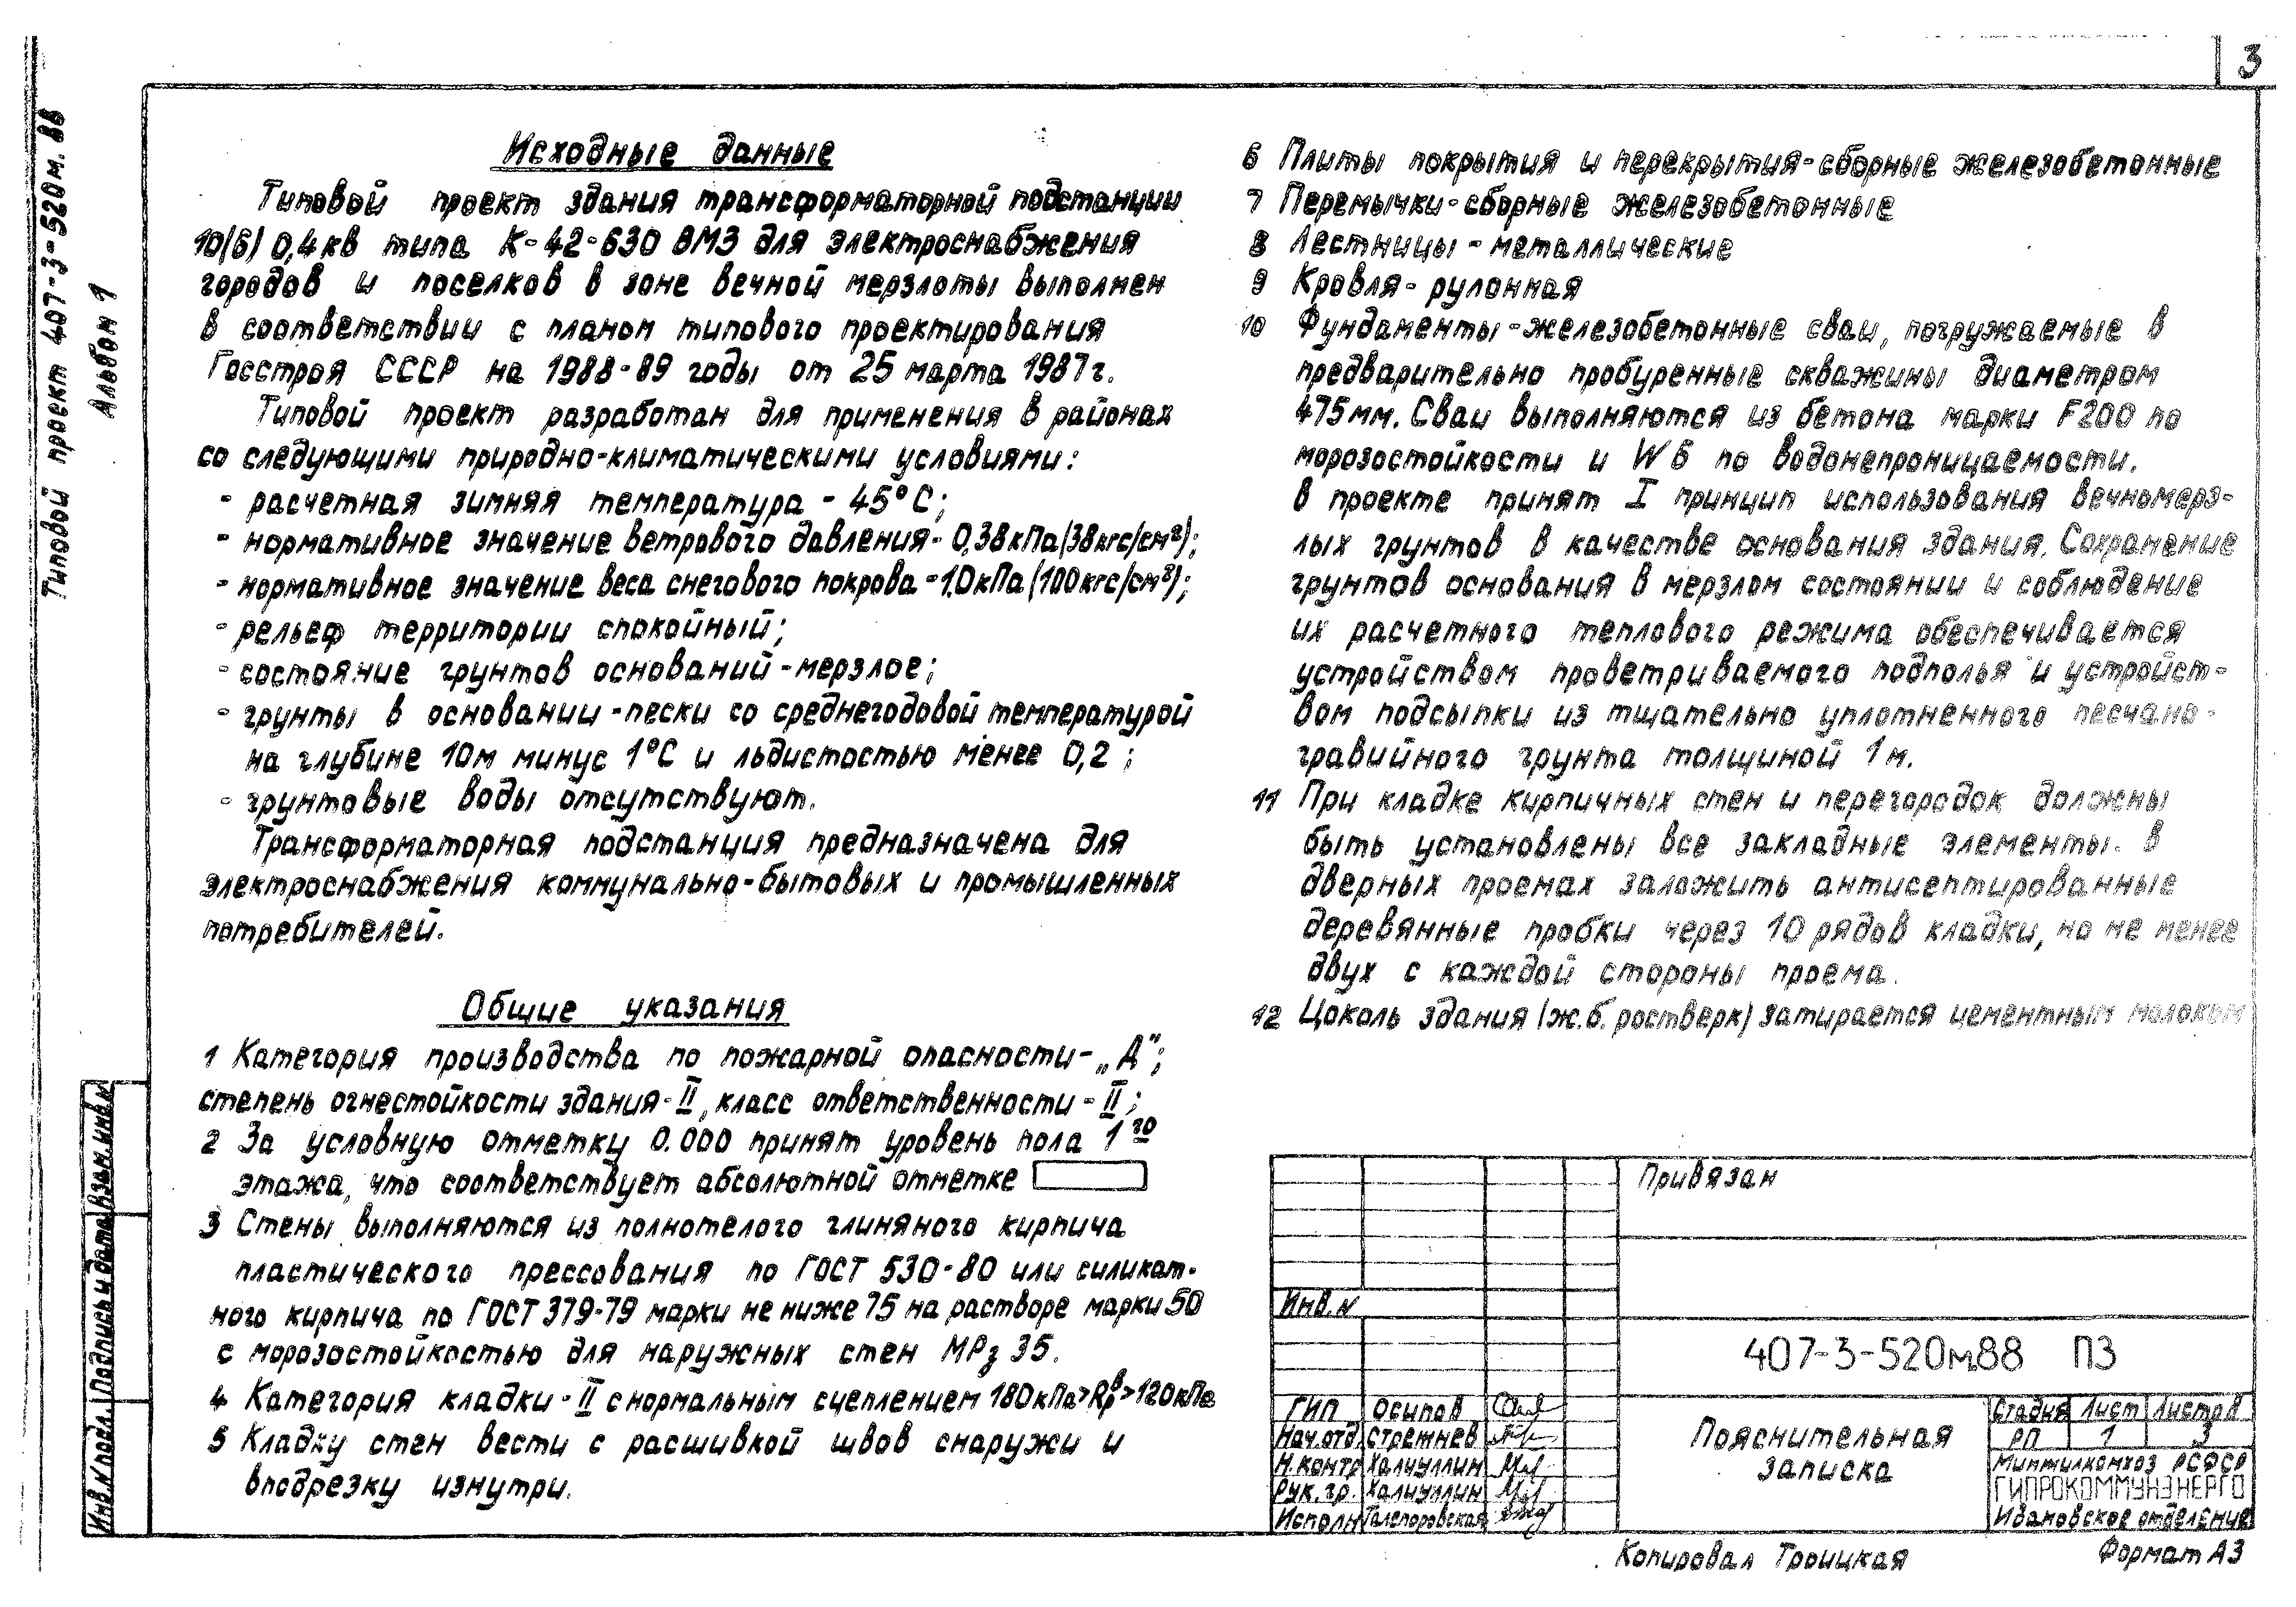 3
Типовой проект 407-3-520м.88
Альбом 1
Исходные данные
Типовой проект здания трансформаторной подстанции
10(6) 0,4кв типа К-42-630 ВМЗ для электроснабжения
городов и поселков в зоне вечной мерзлоты выполнен
в соответствии с планом типового проектирования
Госстроя СССР на 1988-89 годы от 25 марта 1987г.
Типовой проект разработан для применения в районах
со следующими природно-климатическими условиями:
- расчетная зимняя температура - 45°С;
- нормативное значение ветрового давления- 0,38кПа(38кгс/см²);
- нормативное значение веса снегового покрова -1.0кПа(100кгс/см²);
- рельеф территории спокойный;
- состояние грунтов оснований -мерзлое;
- грунты в основании -пески со среднегодовой температурой
на глубине 10м минус 1°С и льдистостью менее 0,2;
- грунтовые воды отсутствуют.
Трансформаторная подстанция предназначена для
электроснабжения коммунально-бытовых и промышленных
потребителей.
Общие указания
1 Категория производства по пожарной опасности- „Д";
степень огнестойкости здания- II, класс ответственности - II;
2 За условную отметку 0.000 принят уровень пола 1го
этажа, что соответствует абсолютной отметке
3 Стены выполняются из полнотелого глиняного кирпича
пластического прессования по ГОСТ 530-80 или силикат-
ного кирпича по ГОСТ 379-79 марки не ниже 75 на растворе марки 50
с морозостойкостью для наружных стен МРз 35.
4 Категория кладки- II с нормальным сцеплением 180кПа>Rрв>120кПа
5 Кладку стен вести с расшивкой швов снаружи и
вподрезку изнутри.
6 Плиты покрытия и перекрытия-сборные железобетонные
7 Перемычки-сборные железобетонные
8 Лестницы - металлические
9 Кровля- рулонная
10 Фундаменты -железобетонные сваи, погружаемые в
предварительно пробуренные скважины диаметром
475мм. Сваи выполняются из бетона марки F200 по
морозостойкости и W6 по водонепроницаемости.
в проекте принят I принцип использования вечномерз-
лых грунтов в качестве основания здания. Сохранение
грунтов основания в мерзлом состоянии и соблюдение
их расчетного теплового режима обеспечивается
устройством проветриваемого подполья и устройст-
вом подсыпки из тщательно уплотненного песчано-
гравийного грунта толщиной 1м.
11 При кладке кирпичных стен и перегородок должны
быть установлены все закладные элементы. в
дверных проемах заложить антисептированные
деревянные пробки через 10 рядов кладки, но не менее
двух с каждой стороны проема.
12 Цоколь здания (ж.б. ростверк) затирается цементным молоком
Привязан
Инв.N
407-3-520м88 ПЗ
ГИП Осипов
Нач.отд. Стрежнев
Н.контр Халиуллин
Рук.гр. Халиуллин
Исполн
Пояснительная
записка
Стадия Лист Листов
РП 1 3
Минжилкомхоз РСФСР
ГИПРОКОММУНЭНЕРГО
Ивановское отделение
Инв.N подл. Подпись и дата Взам.инв.N
Копировал Троицкая
Формат А3